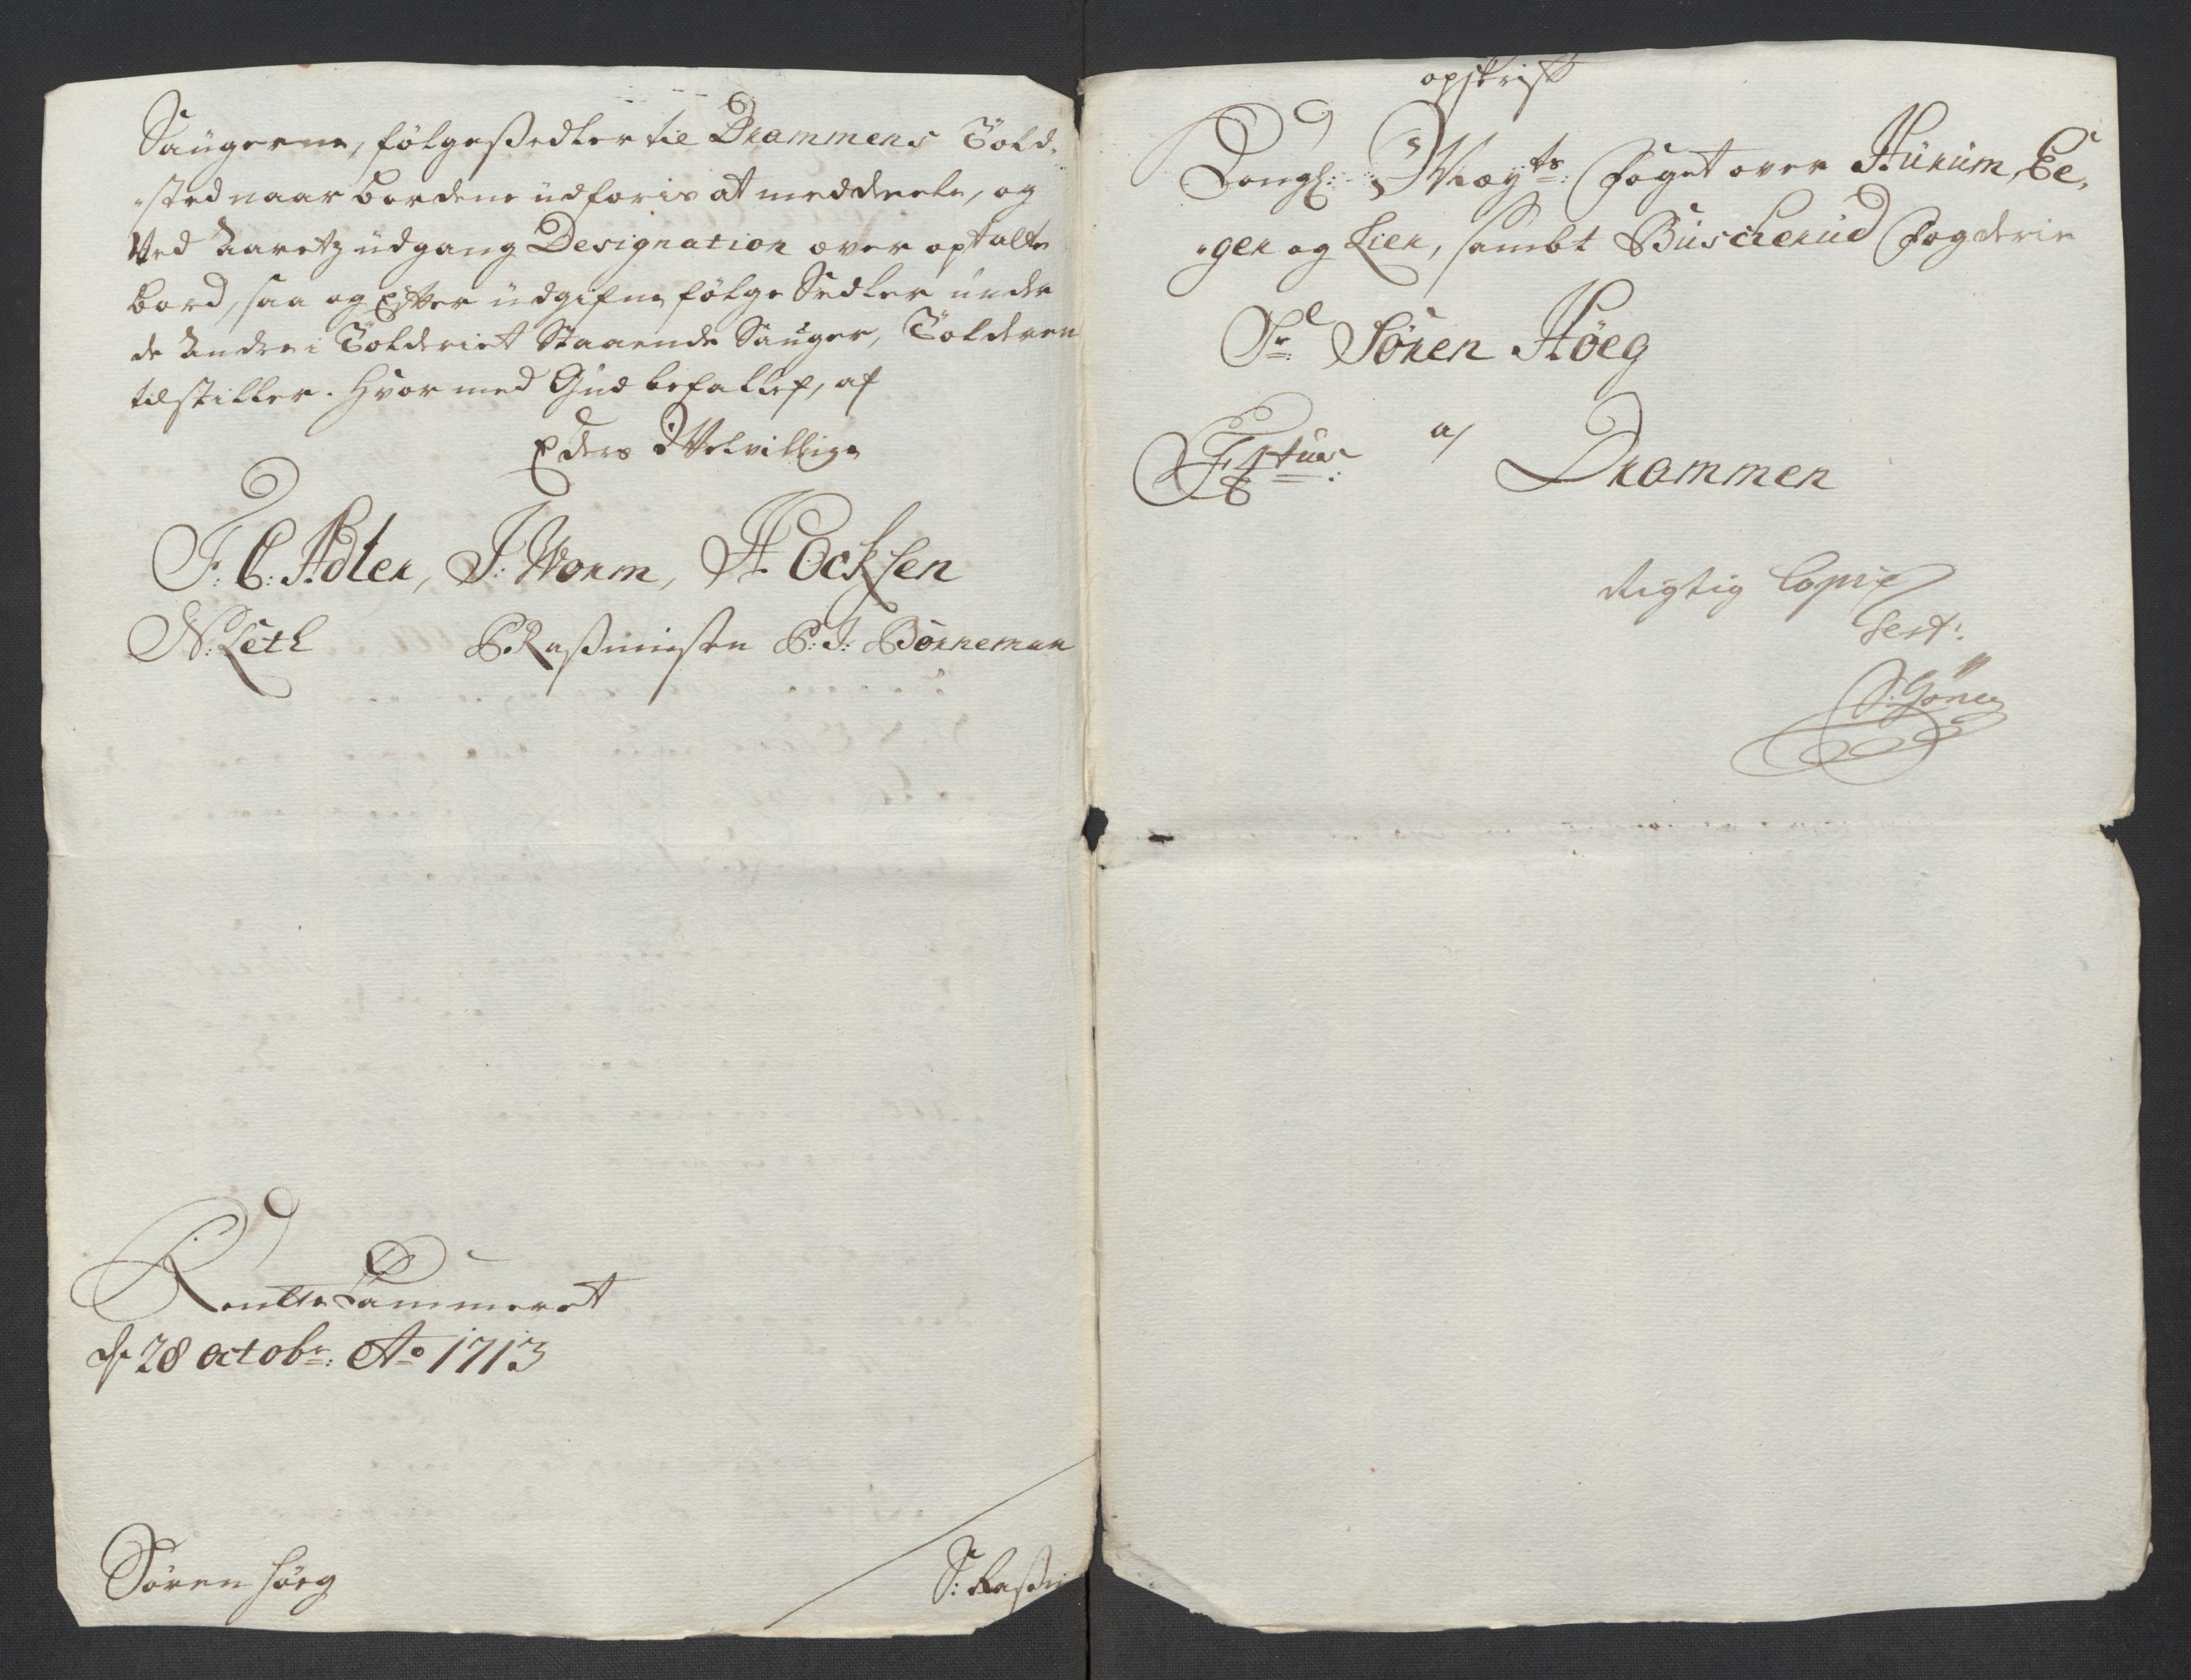 Saugerne, følgesedler til Drammens Told-
sted naar bordene udføris at meddeele, og
Ved Aaretz udgang Designation over optalte
bord, saa og Efter udgifne følge Sedler under
de Andre i Tolderiet Staaende Sauger, Tolderen
tilstiller. Hvormed Gud befallet, af
Eders Velvillige
F: C: Adler, J: Worm, A Ocksen
N: Leth P: Rasmusen P: J: Borneman
RenteCammeret
d. 28 octobr: Ao 1713
Søren Høeg
S: Rasm
opskrift
Kongl: Mayts: Foget over Hurum, Ee-
-ger og Lier, sambt Buscherud Fogderie
Sr. Søren Höeg
a/ Drammen
Rigtig Copie
Test: